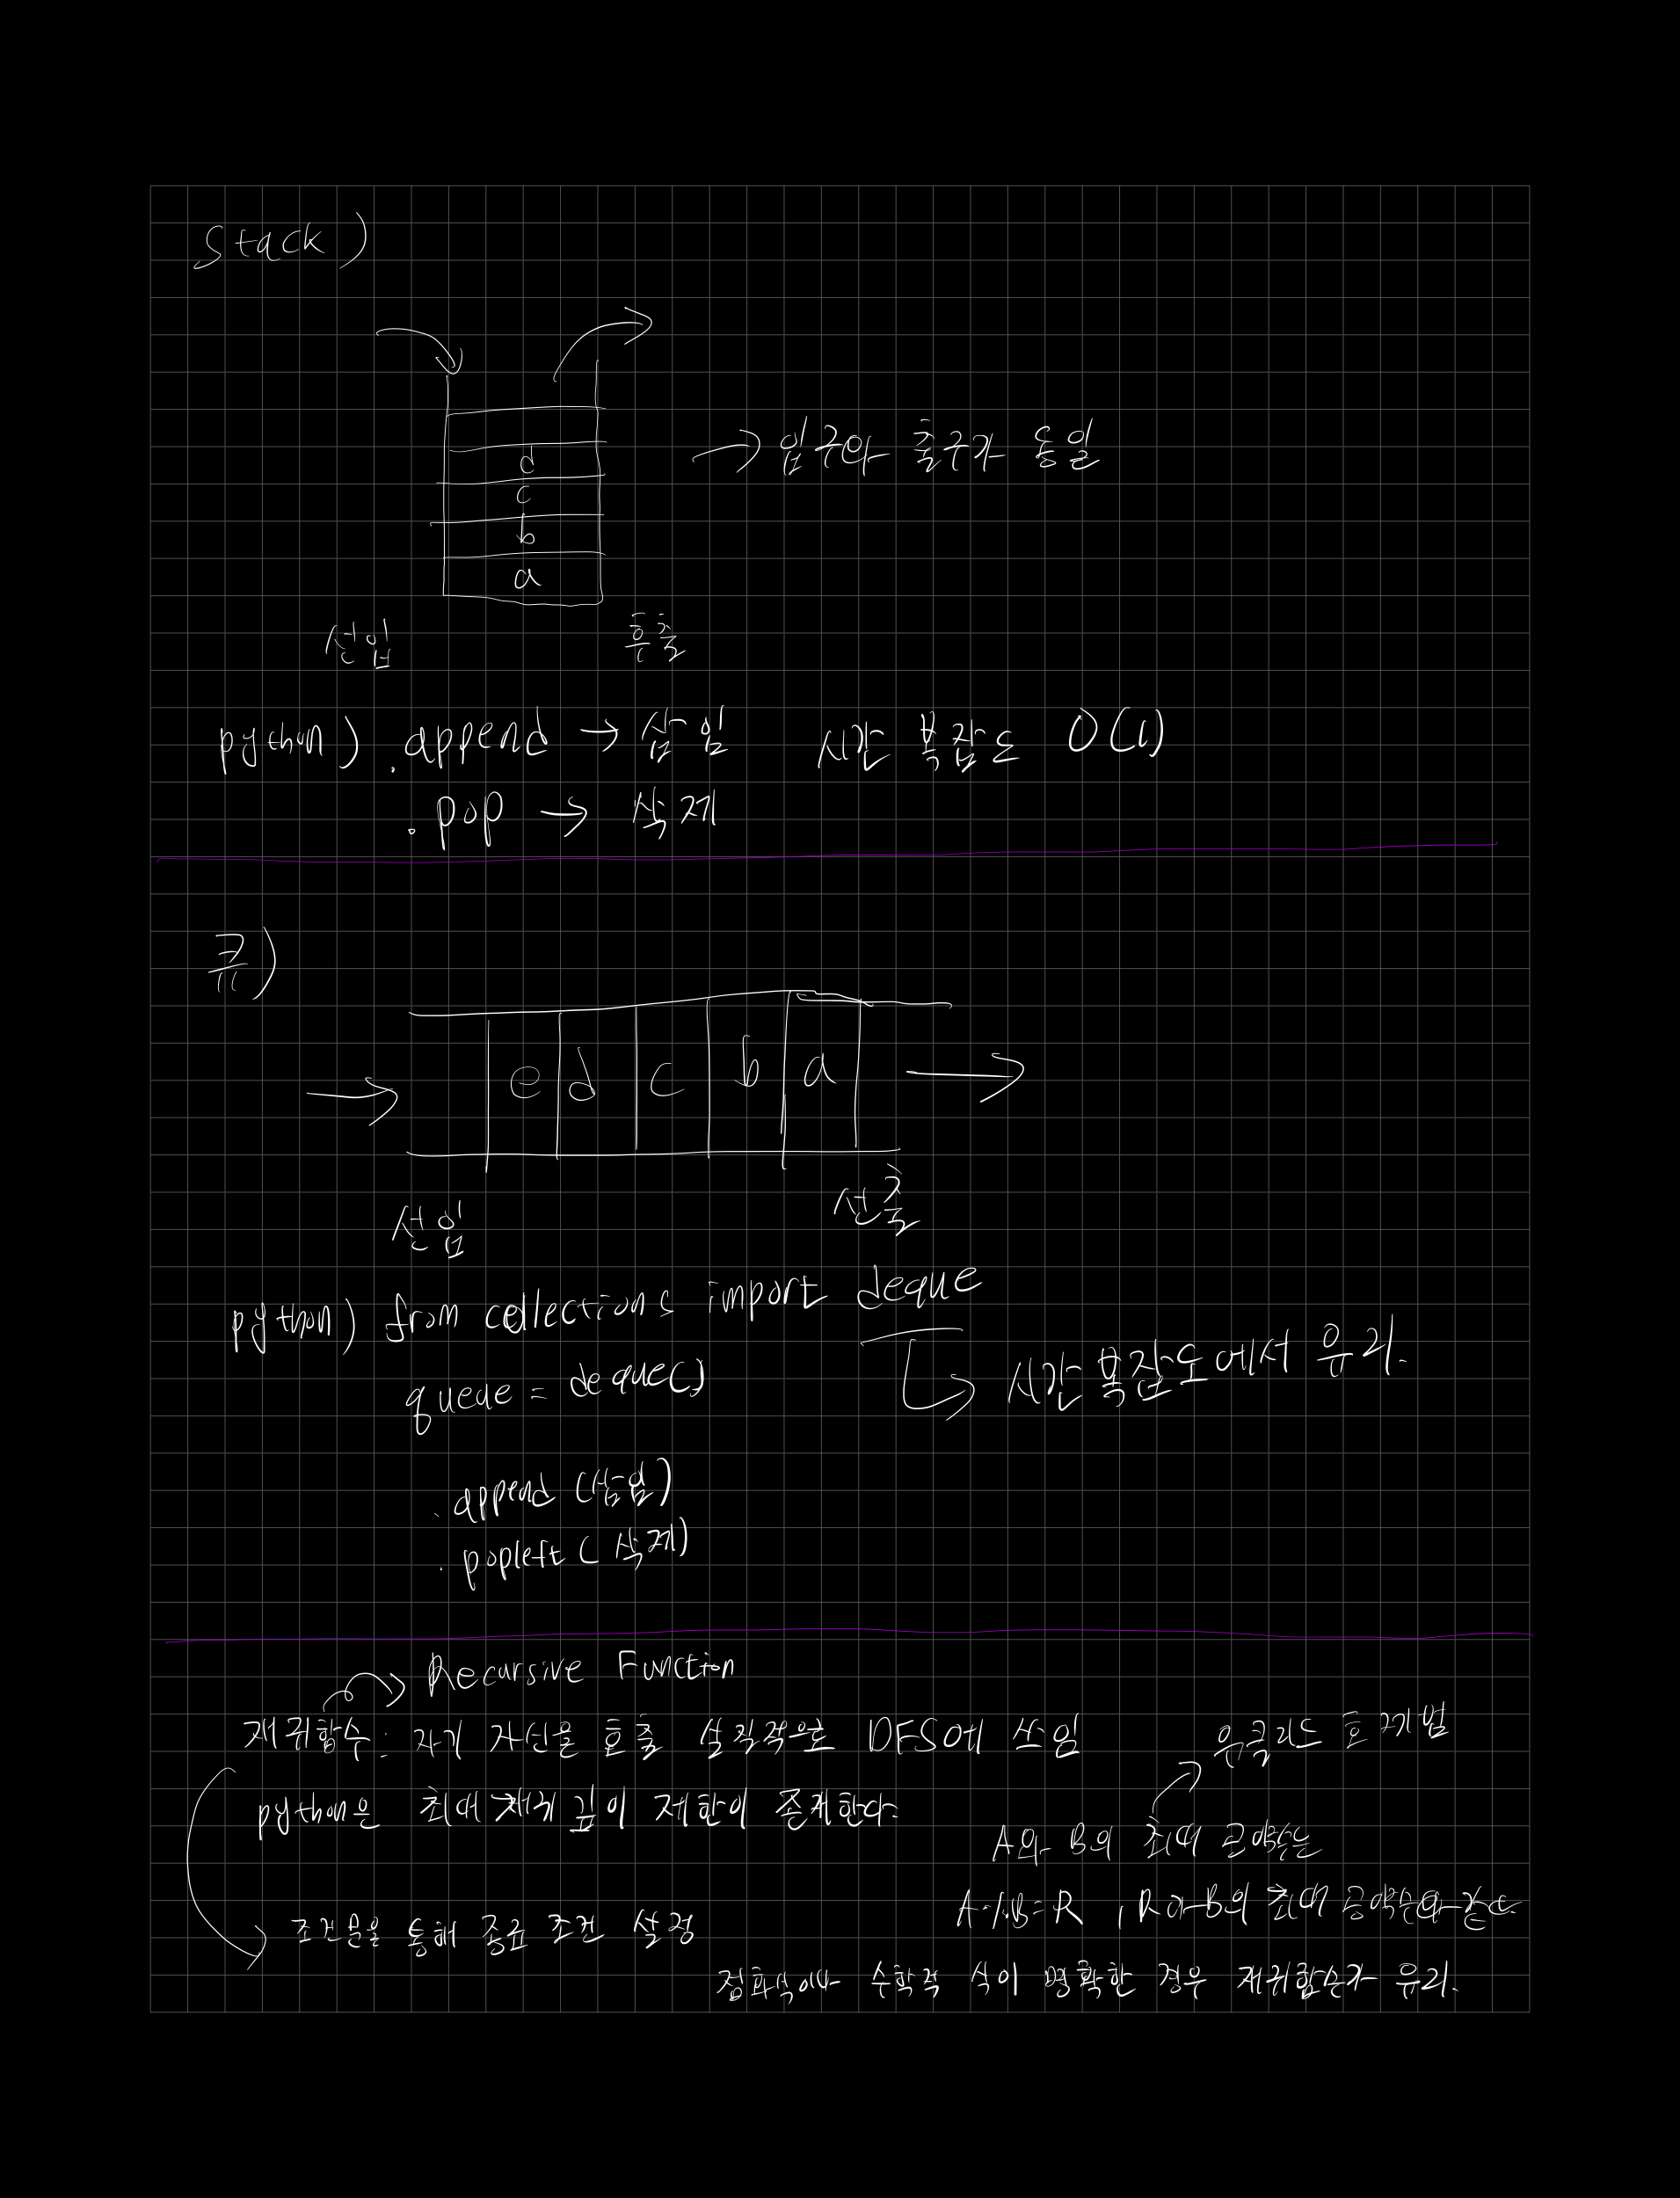 stack)
d
→ 입구와 출구가 동일
c
b
a
선입 후출
python) .append → 삽입 시간 복잡도 O(1)
.pop → 삭제
큐)
→ e d c b a →
선입 선출
python) from collections import deque
→ 시간 복잡도에서 유리.
queue = deque()
.append (삽입)
.popleft (삭제)
→ Recursive Function
재귀함수 : 자기 자신을 호출 실질적으로 DFS에 쓰임
유클리드 호제법
python은 최대 재귀 깊이 제한이 존재한다.
A와 B의 최대 공약수는
A%B=R , R와 B의 최대 공약수와 같다
→ 조건문을 통해 종료 조건 설정
점화식이나 수학적 식이 명확한 경우 재귀함수가 유리.